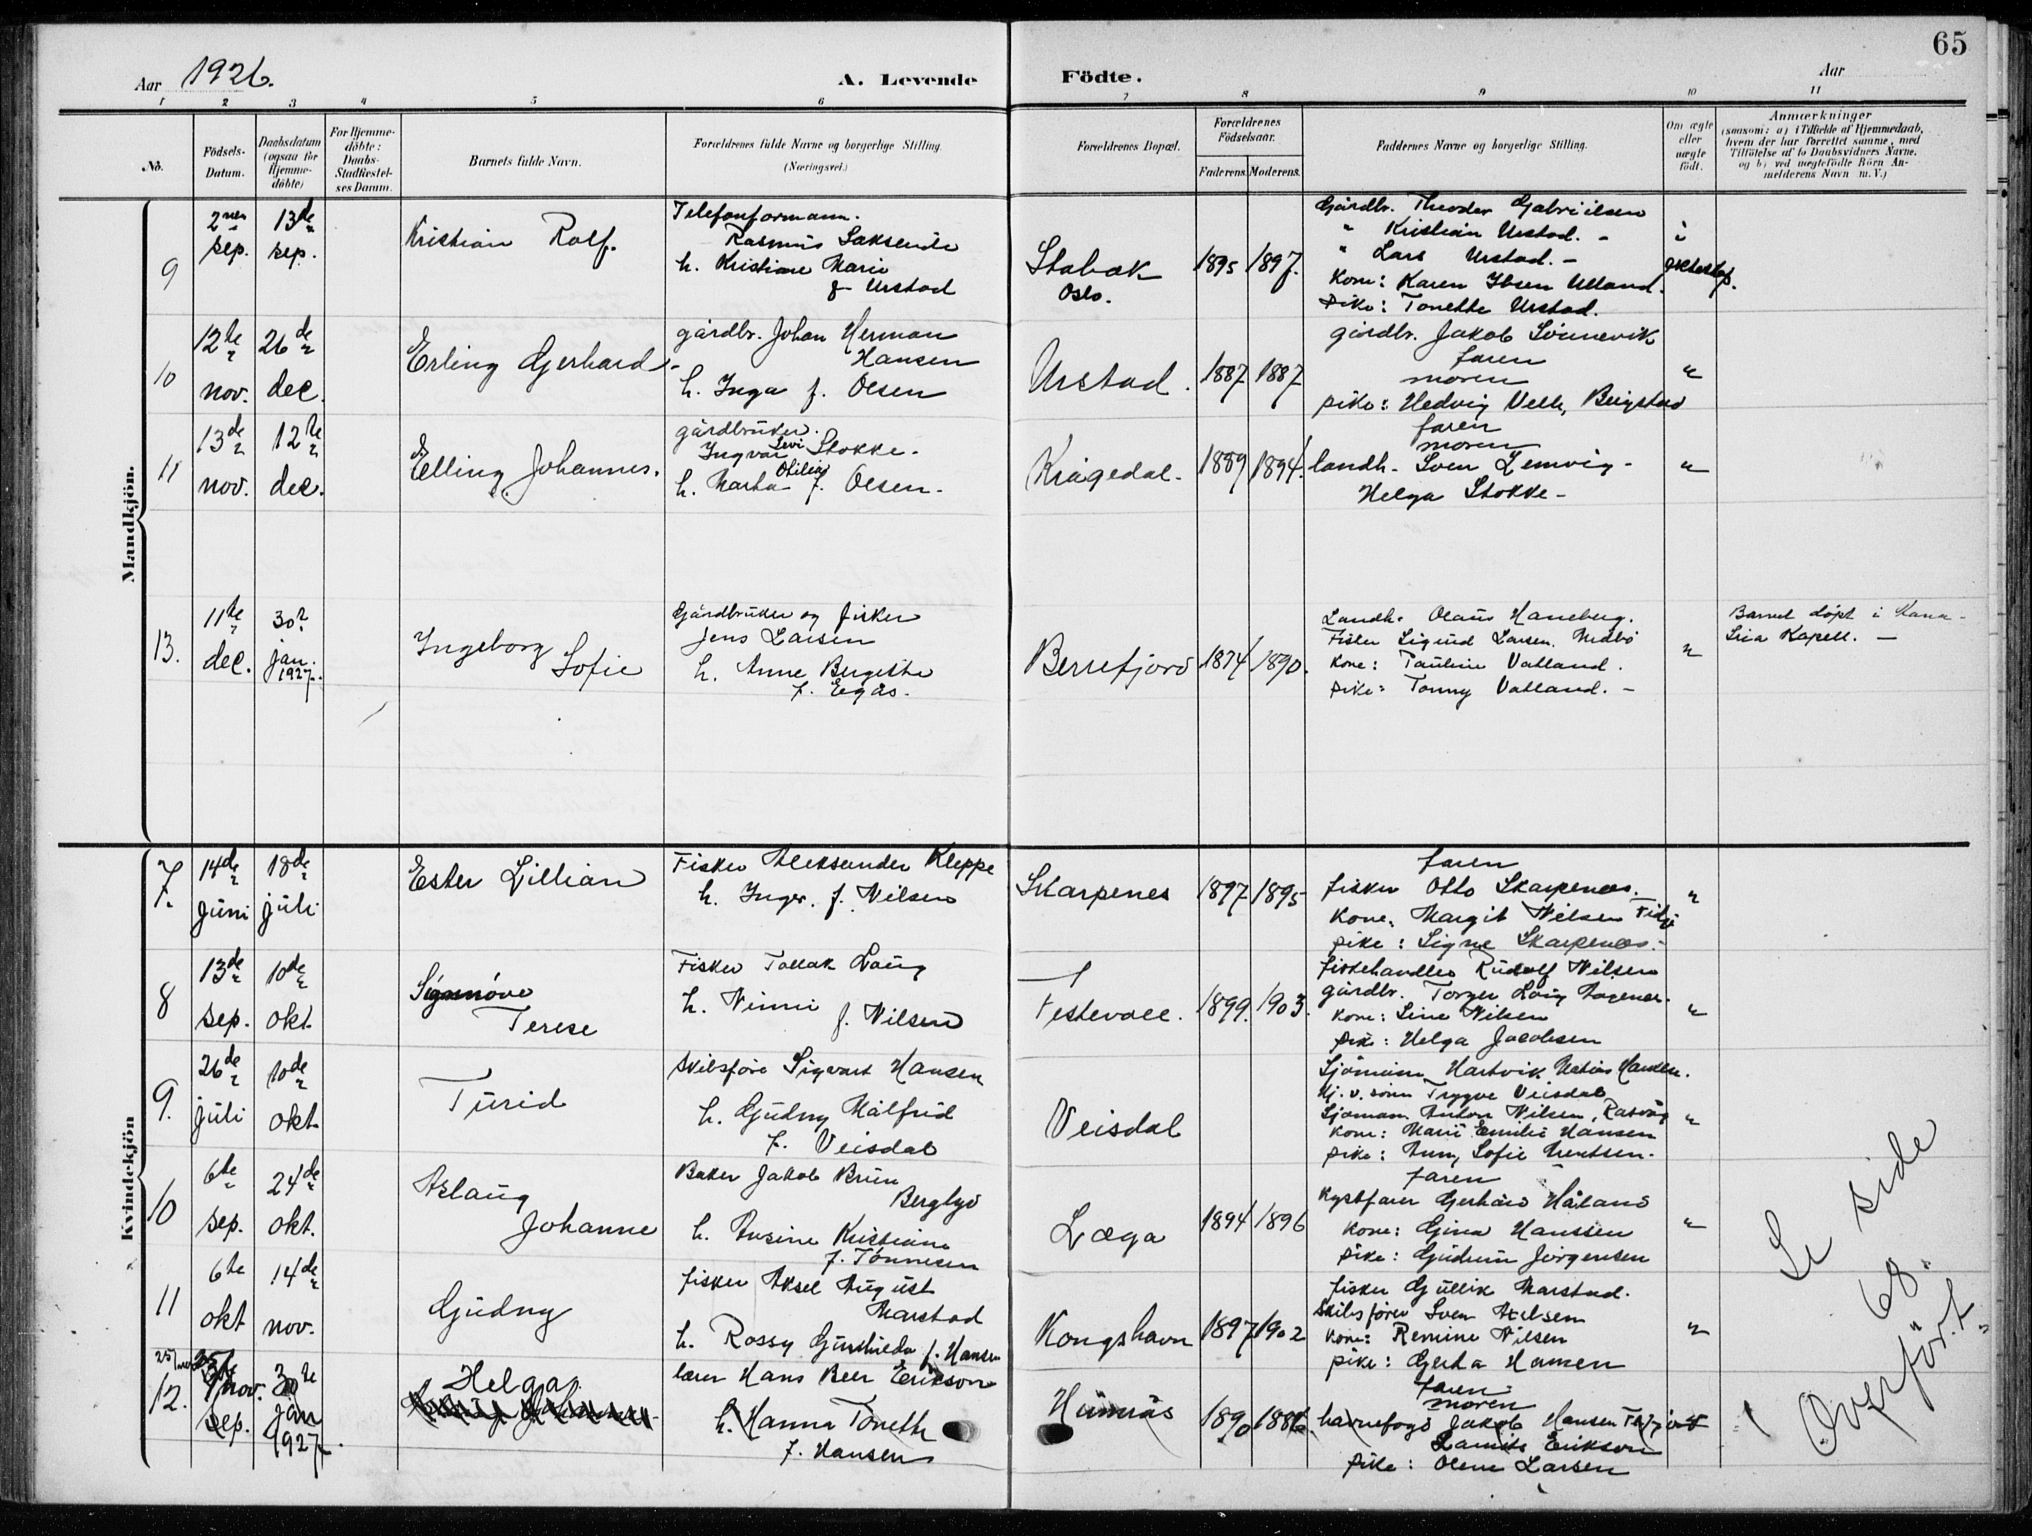 65
Aar 1926.
A. Levende Födte.
Aar
1 2 3 4 5 6 7 8 9 10 11
No.
Födsels-Datum.
Daabsdatum (ogsaa for Hjemme-döbte)
For Hjemme-döbte: Daabs-Stadfæstel-ses Datum.
Barnets fulde Navn.
Forældrenes fulde Navne og borgerlige Stilling (Næringsvei.)
Forældrenes Bopæl.
Forældrenes Födselsaar.
Faderens. Moderens.
Faddernes Navne og borgerlige Stilling.
Om ægte eller uægte födt.
Anmærkninger
(saasom: a) i Tilfælde af Hjemmedaab, hvem der har forrettet samme, med Tilföielse af to Daabsvidners Navne, og b) ved uægtefödte Börn An-melderens Navn m. V.)
Mandkjön.
9
2nen sep.
13de sep.
Kristian Rolf.
Telefonformann.
Rasmus Saksende
h. Kristiane Marie
f. Urstad
Stabæk
Oslo.
1895 1897.
Gårdbr. Theodor Gabrielsen
" Kristian Urstad. -
" Lars Urstad. -
kone: Karen Ibsen Ulland.
pike: Tonette Urstad.
i ekteskap.
10
12te nov.
26de dec.
Erling Gerhard.
gårdbr. Johan Herman
Hansen
h. Inga f. Olsen
Urstad.
1887 1887
gårdbr. Jakob Sönnevik
faren
moren
pike: Hedvig Velle, Bergstad
"
11
13de nov.
12te dec.
Elling Johannes.
gårdbruker.
Ingvar Levi Stokke.
h. Marta Otilia f. Olsen.
Krågedal.
1889 1894.
faren
moren
landh. Sven Lemvig -
Helga Stokke -
"
13.
11te dec.
30. jan. 1927.
Ingeborg
Sofie
Gårdbruker og fisker
Jens Larsen
h. Anne Bergitte
f. Egås.
Berrefjord
1874 1890.
Landh. Olaus Haneberg.
Fisker Sigurd Larsen,
kone: Pauline Vatland.
pike: Tonny Vatland. -
"
Barnet döpt i
Kapell. -
Kvindekjön
7.
14de juni
18de juli
Ester Lillian
Fisker Aleksander Kleppe
h. Inger. f. Nilsen
Skarpenes
1897 1895
faren
fisker Otto Skarpenes.
kone, Margit Nilsen
pike: Signe Skarpenes.
"
8
13de sep.
10de okt.
Terese
Fisker Tallak Laug
h. Ninni f. Nilsen
Festevoll.
1899. 1903.
fiskehandler Rudolf Nilsen
gårdbr. Torger Laug
kone: Line Nilsen
pike: Helga Jacobsen
"
9.
26de juli
10de okt
Turid
skibsförer Sigvart Hansen
h. Gudny Målfrid
f. Veisdal
Veisdal
Sjömann Hartvik Hansen.
Hj. v. sönn Trygve Veisdal,
Sjömann Anton Nilsen, Rasvåg
kone: Marie Emilie Hansen
pike: Anny Sofie
"
10
6te sep.
24de okt.
Aslaug
Johanne
Baker Jakob Brun
Berglyd
h. Ansine Kristiane
f. Tönnesen
Læga
1894 1896
faren
Kystfarer Gerhard Håland
kone: Gina Hanssen
pike: Gudrun Jörgensen
"
11
6te okt
14de nov.
Gudny
fisker Aksel August
Marstad
h. Rossy Gunhilda f. Hansen
Kongshavn
1897 1902
fisker Gullik Marstad.
Skibsförer Sven Axelsen
kone: Remine Nilsen
pike: Gerda Hansen
"
12.
25/nov
nov.
sep.
30te jan 1927.
Helga.
lærer Hans Beer Erikson
h. Hanna Toneth
f. Hansen
Humnås
1890 1886
faren
moren
havnefogd Jakob Hansen
Erikson
pike: Olene Larsen
Se side
68.
Overfört